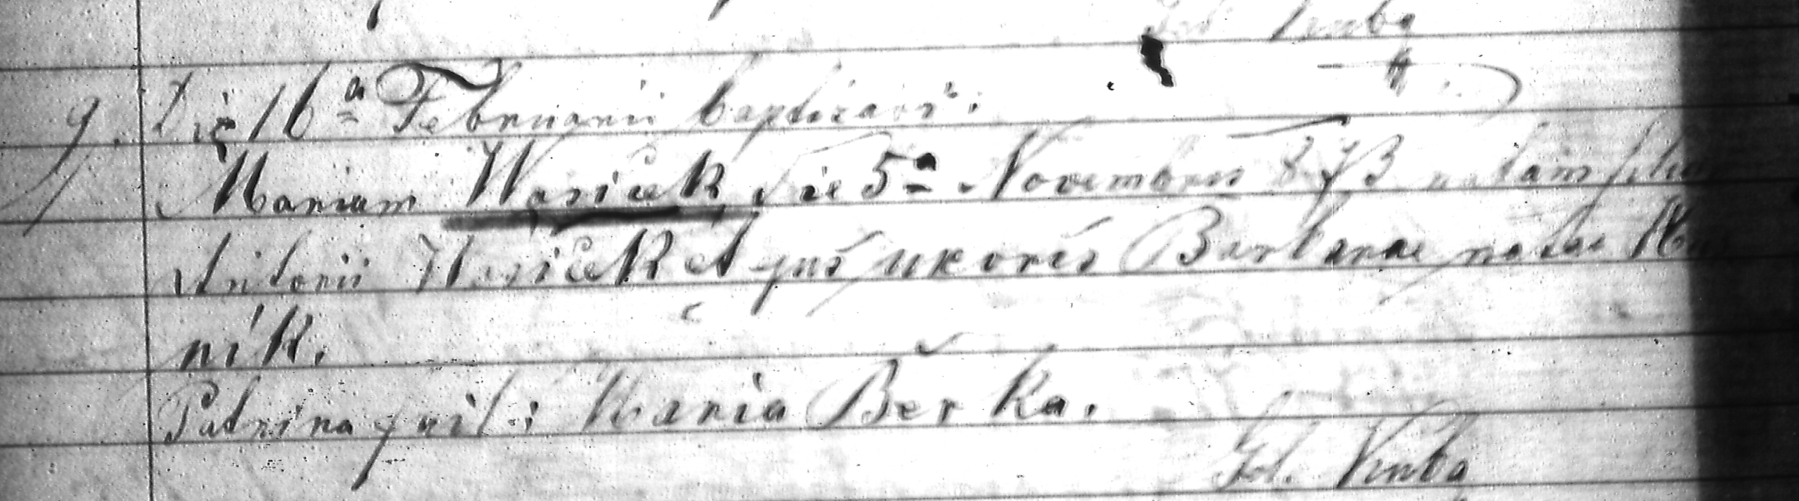 9. Die 16a Februarii baptizavi:
Mariam Wasiček, die 5a Novembris 873 natam filiam
Antonii Wasiček et ejus uxoris Barbarae natae
nik.
Patrina fuit: Maria Berka.